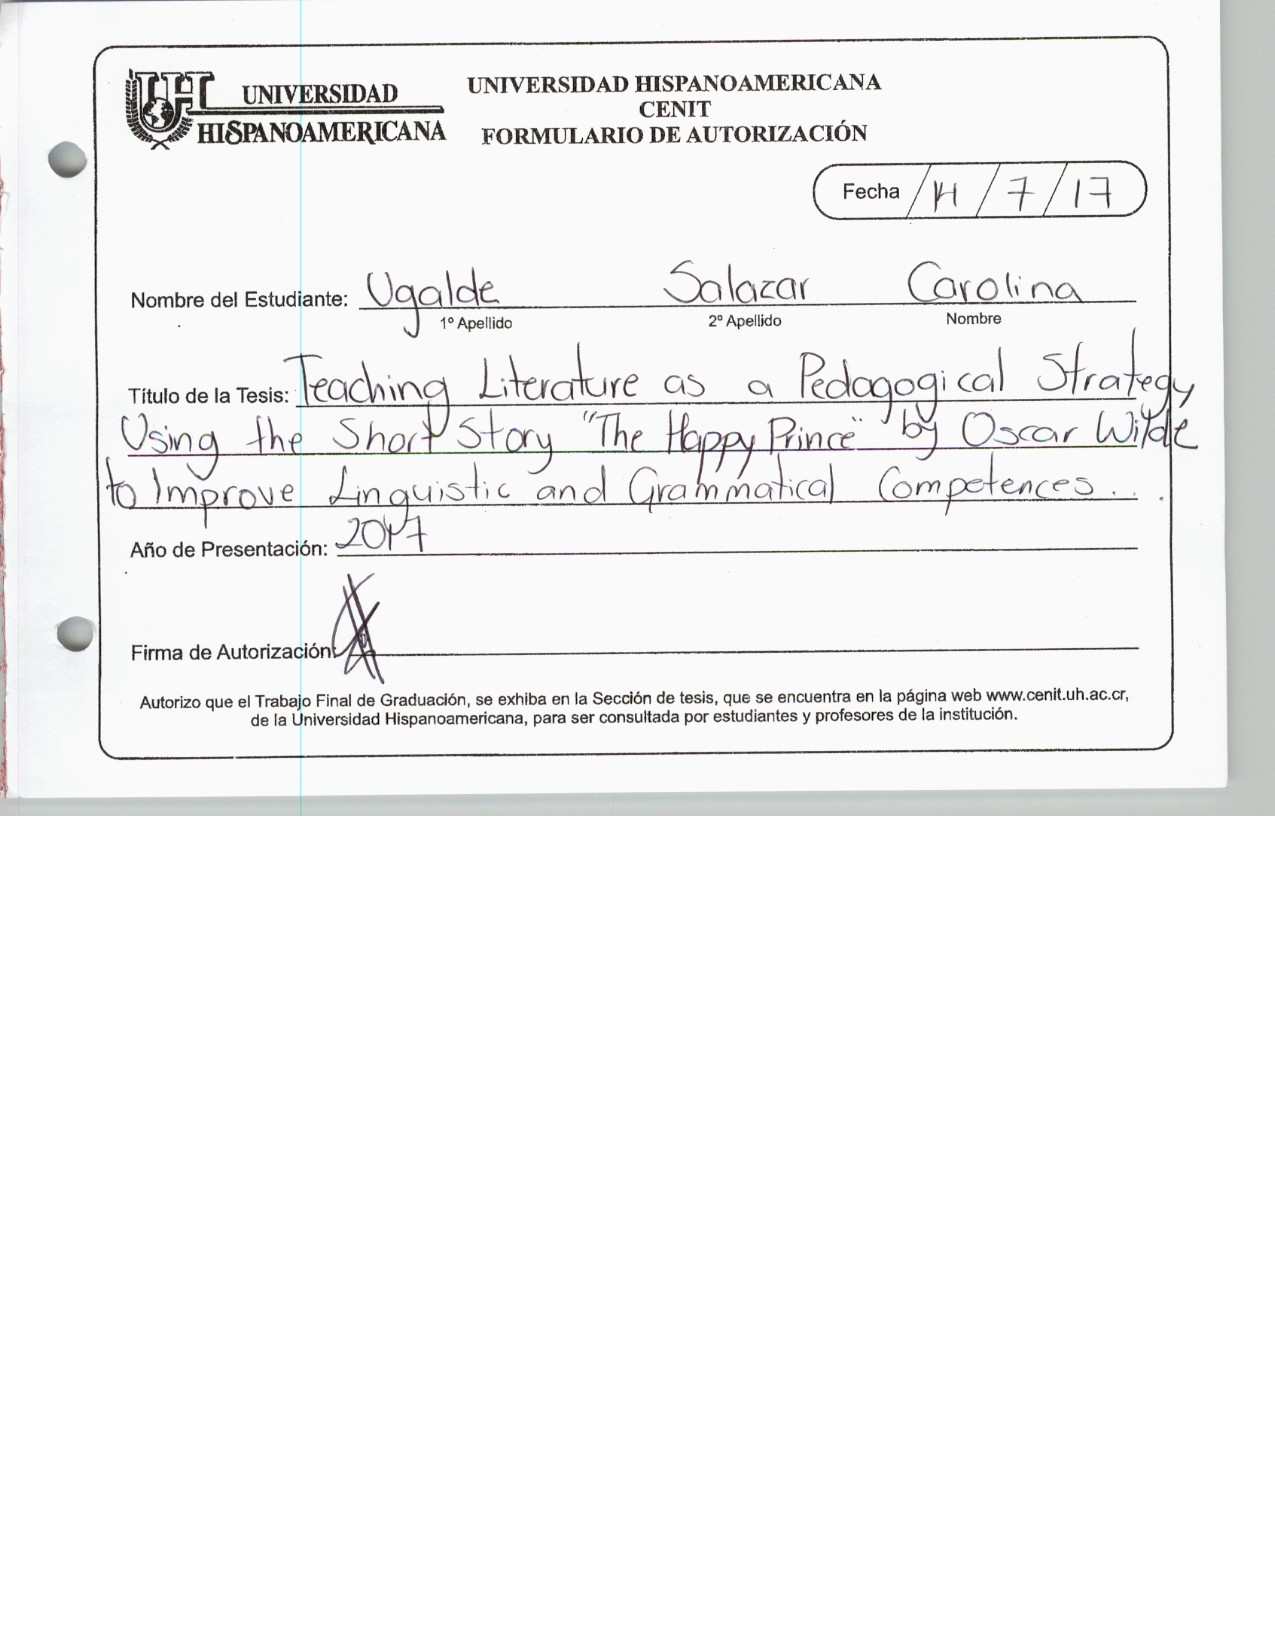 UNIVERSIDAD
HISPANOAMERICANA
UNIVERSIDAD HISPANOAMERICANA
CENIT
FORMULARIO DE AUTORIZACIÓN
Fecha / / 7 / 17
Nombre del Estudiante: Ugalde Salazar Carolina
1º Apellido 2º Apellido Nombre
Título de la Tesis: Teaching Literature as a Pedagogical Strategy
Using the Short Story "The Happy Prince" by Oscar Wilde
to Improve Linguistic and Grammatical Competences...
Año de Presentación: 2017
Firma de Autorización:
Autorizo que el Trabajo Final de Graduación, se exhiba en la Sección de tesis, que se encuentra en la página web www.cenit.uh.ac.cr,
de la Universidad Hispanoamericana, para ser consultada por estudiantes y profesores de la institución.